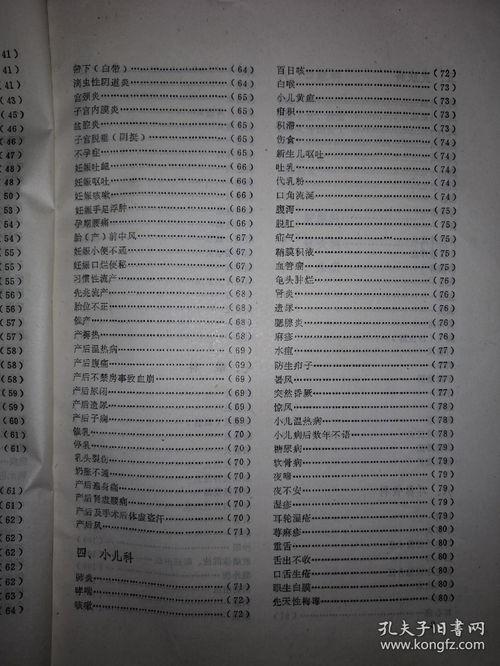 41)
41)
(43)
(45)
(46)
(46)
(47)
48)
50)
53)
54)
55)
55)
56)
(57)
57)
(58)
(58)
(58)
(59)
(59)
(60)
(60)
(61)
(61)
(61)
(61)
62)
62)
62)
63)
64)
带下（白带）(64)
滴虫性阴道炎(64)
宫颈炎(65)
子宫内膜炎(65)
盆腔炎(65)
子宫脱垂（阴挺）(65)
不孕症(65)
妊娠吐衄(66)
妊娠呕吐(66)
妊娠咳嗽(66)
妊娠手足浮肿(66)
孕期腰痛(66)
胎（产）前中风(67)
妊娠小便不通(67)
妊娠口烂便秘(67)
习惯性流产(67)
先兆流产(68)
胎位不正(68)
催产(68)
产褥热(68)
产后温热病(69)
产后腹痛(69)
产后不禁房事致血崩(69)
产后尿闭(69)
产后遗尿(69)
产后子痫(69)
催乳(70)
停乳(70)
乳头裂伤(70)
奶胀不通(70)
产后遍身痛(70)
产后肾虚腰痛(70)
产后及手术后体虚盗汗(71)
产后风(71)
四、小儿科
肺炎(71)
哮喘(72)
咳嗽(72)
百日咳(72)
白喉(73)
小儿黄疸(73)
疳积(73)
积滞(74)
伤食(74)
新生儿呕吐(74)
吐乳(74)
代乳粉(74)
口角流涎(74)
腹泻(75)
脱肛(75)
疝气(75)
鞘膜积液(75)
血管瘤(75)
龟头肿烂(76)
肾炎(76)
遗尿(76)
腮腺炎(76)
麻疹(76)
水痘(77)
防生疖子(77)
暑风(77)
突然昏厥(77)
惊风(78)
小儿温热病(78)
小儿病后数年不语(78)
糖尿病(79)
软骨病(79)
夜啼(79)
夜不安(79)
湿疹(79)
耳轮湿疮(79)
荨麻疹(80)
重舌(80)
舌出不收(80)
口舌生疮(80)
眼生白膜(80)
先天性梅毒(80)
孔夫子旧书网
www.kongfz.com